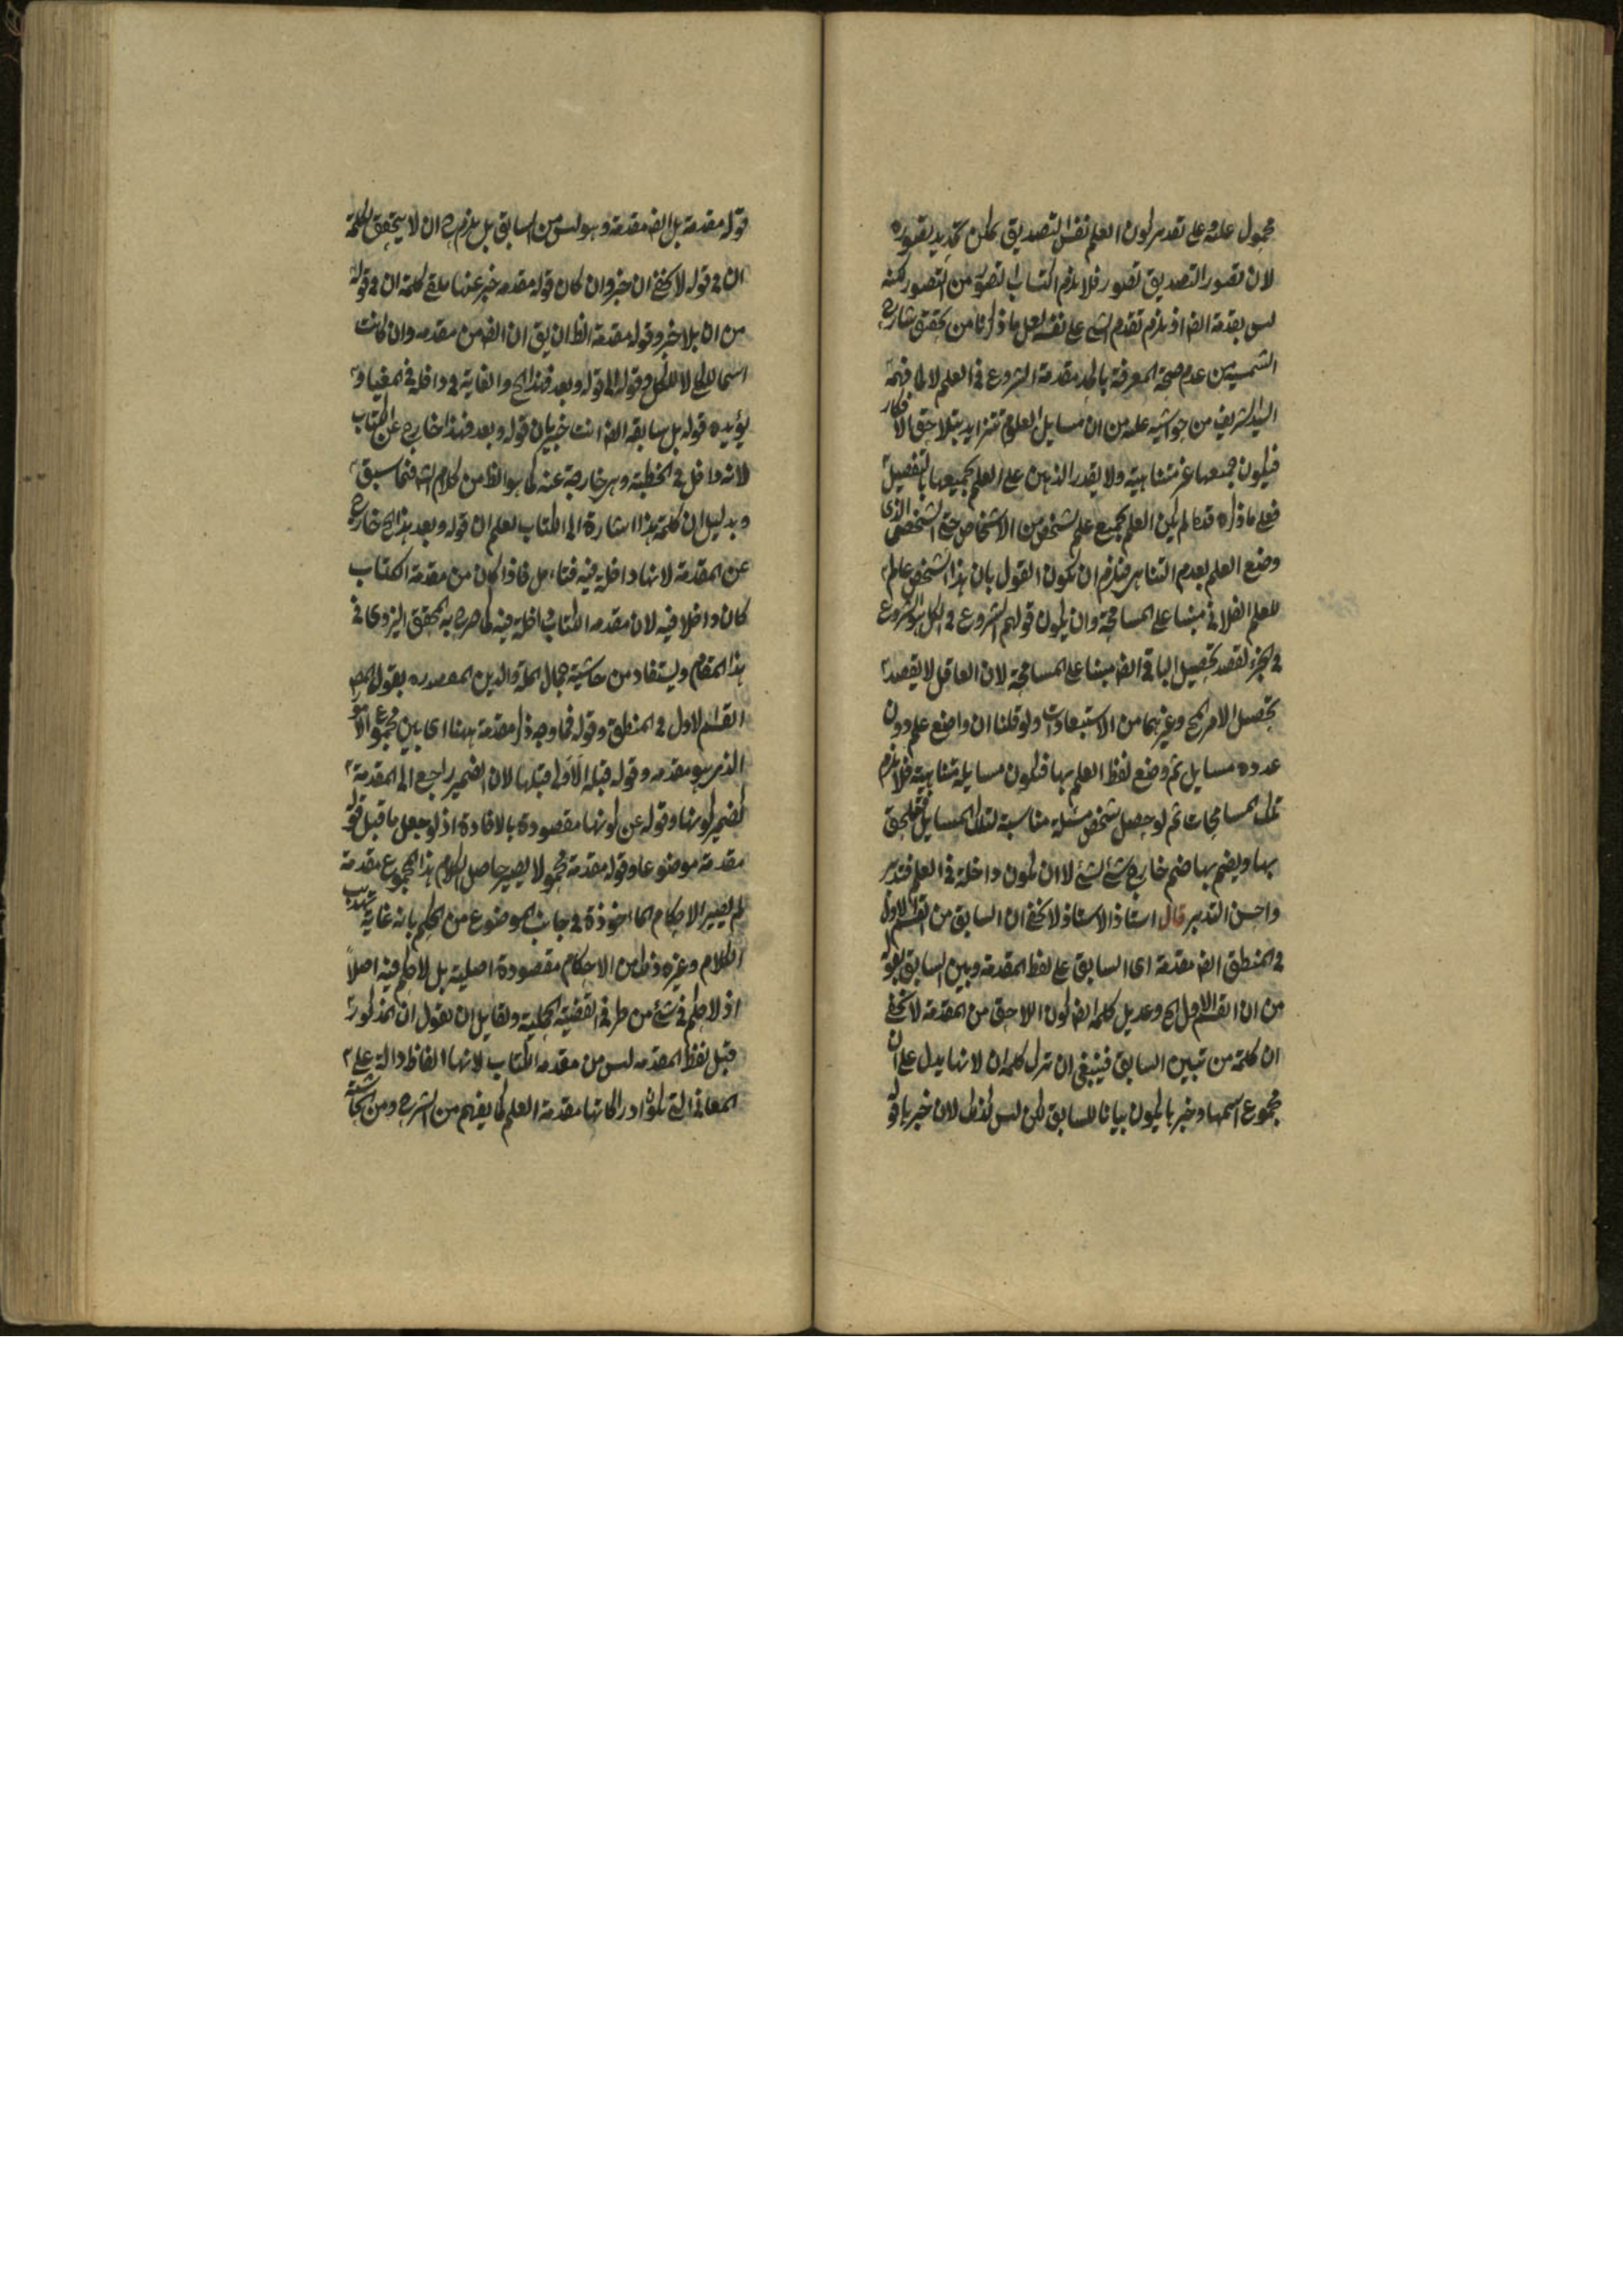 محمول عليه وعلى تقدير كون العلم نفس التصديق يمكن تحديد تصوره
لان تصور التصديق تصور فلا يلزم اكتساب التصور من التصور لكنه
ليس بمقدمة ايضا اذ يلزم تقدم الشئ على نفسه لعل ما ذكرنا من تحقيق شارح
الشمسية من عدم صحة المعرفة بالحد مقدمة الشروع في العلم لا لما فهمه
السيد الشريف من حواشيه عليه من ان مسايل العلوم تتزايد بتلاحق الافكار
فيكون جميعها غير متناهية ولا يقدر الذهن على العلم بجميعها بالتفصيل
فعلى ما ذكره قد لم يكن العلم بجميع علم لشخص من الاشخاص حتى الشخص الذى
وضع العلم بعدم التناهى فيلزم ان يكون القول بان هذا الشخص عالم
للعلم الفلانى مبنيا على المسامحة وان يكون قولهم الشروع في الكل هو الشروع
في الجزء لقصد تحصيل الباقى ايضا مبنيا على المسامحة لان العاقل لا يقصد
تحصيل الامر الخ وغيرهما من الاستبعادات ولو قلنا ان واضع علم دون
عدده مسايل ثم وضع لفظ العلم بها فيكون مسايله متناهية فلا يلزم
تلك المسامحات ثم لو حصل شخص مسئلة مناسبة لتلك المسايل فيلحق
بها ويضم بها ضم خارج شئ لشئ لا ان يكون داخلة في العلم فتدبر
واحسن التدبر قال استاذ الاستاذ لا يخفى ان السابق من القسم الاول
في المنطق ايضا مقدمة اى السابق على لفظ المقدمة وبين السابق بقوله
من ان القسم الاول الخ وعديل كلمة ايضا كون اللاحق من المقدمة لا يخفى
ان كلمة من تبيين السابق فينبغى ان تترك كلمة ان لانها يدل على ان
مجموع اسمها وخبرها يكون بيانا للسابق لكن ليس كذلك لان خبرها قوله
قوله مقدمة بل ايضا مقدمة وهو ليس من السابق بل يلزم ح ان لا يتحقق لكلمة
ان في قوله لا يخفى ان خبر وان كان قوله مقدمة خبر عنها يبقى كلمة ان في قوله
من ان بلا خبر وقوله مقدمة الظ ان يق ان ايضا من مقدمه وان كانت
اسما للكل لا للكل وقوله الى قوله وبعد فهذا الخ والغاية ح داخلة في المغيا و
يؤيده قوله بل سابقه ايضا انت خبير بان قوله وبعد فهذا خارج عن الكتاب
لانه داخل في الخطبة وهى خارجة عنه كما هو الظ من كلام الشه فيما سبق
وبدليل ان كلمة هذا اشارة الى الكتاب لعلم ان قوله وبعد هذا الخ خارج
عن المقدمة لانها داخلة فيه فتامل فاذا كان من مقدمة الكتاب
كان داخلا فيه لان مقدمه الكتاب داخلة فيه كما صرح به المحقق اليزدى في
هذا المقام ويستفاد من حاشية جمال الملة والدين المصدره بقول المص
القسم الاول في المنطق وقوله فما وجه ذكر مقدمة ههنا اى بين مجموع الامور
الذى هو مقدمه وقوله قبله الاولى قبلها لان الضمير راجع الى المقدمة
كضمير كونها وقوله عن كونها مقصودة بالافادة اذ لو جعل ما قبل قوله
مقدمة موضوعا وقوله مقدمة محمولا يصير حاصل الكلام هذا المجموع مقدمة
لم يصير الاحكام الماخوذة في جانب الموضوع من الحكم بانه غاية تهذيب
الكلام وغيره ذلك من الاحكام مقصودة اصلية بل لا حكم فيه اصلا
اذ لا حكم في شئ من طرفى القضية الحملية ولقايل ان يقول ان المذكور
قبل لفظ المقدمه ليس من مقدمه الكتاب لانها الفاظ دالة على
المعانى التى يكون ادراكاتها مقدمة العلم كما يفهم من الشرح ومن الحاشية